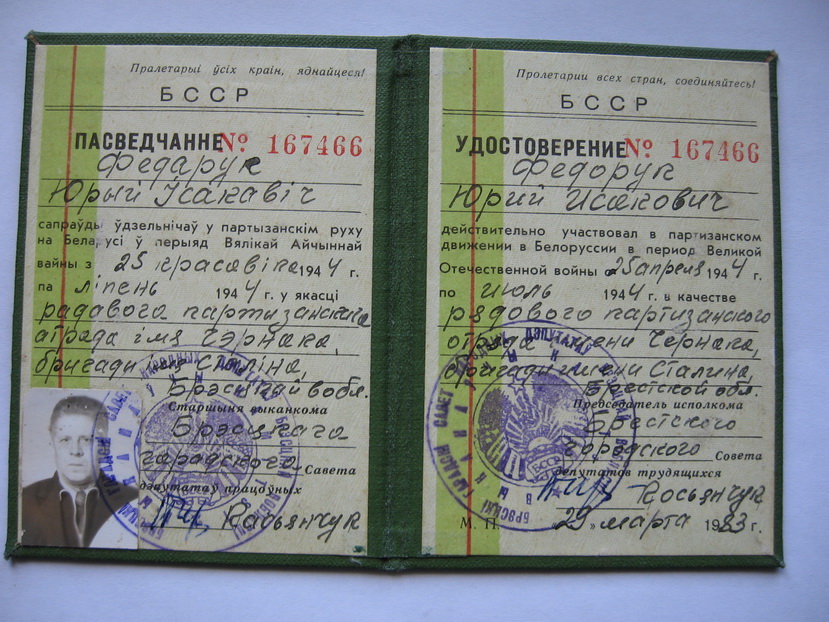 Пралетарыі ўсіх краін, яднайцеся!
БССР
ПАСВЕДЧАННЕ № 167466
Федарук
Юрый Ісакавіч
сапраўды ўдзельнічаў у партызанскім руху
на Беларусі ў перыяд Вялікай Айчыннай
вайны з 25 красавіка 1944 г.
па ліпень 1944 г. у якасці
радавога партызанскага
атрада імя Чэрнака,
бригады імя Сталіна,
Брэсцкай вобл.
Старшыня выканкома
Брэсцкага
гарадскога Савета
дэпутатаў працоўных
Касьянчук
Пролетарии всех стран, соединяйтесь!
БССР
УДОСТОВЕРЕНИЕ № 167466
Федорук
Юрий Исакович
действительно участвовал в партизанском
движении в Белоруссии в период Великой
Отечественной войны с 25 апреля 1944 г.
по июль 1944 г. в качестве
рядового партизанского
отряда имени Чернака,
бригады имени Сталина,
Брестской обл.
Председатель исполкома
Брестского
городского Совета
депутатов трудящихся
Косьянчук
М. П. «29» марта 1983 г.